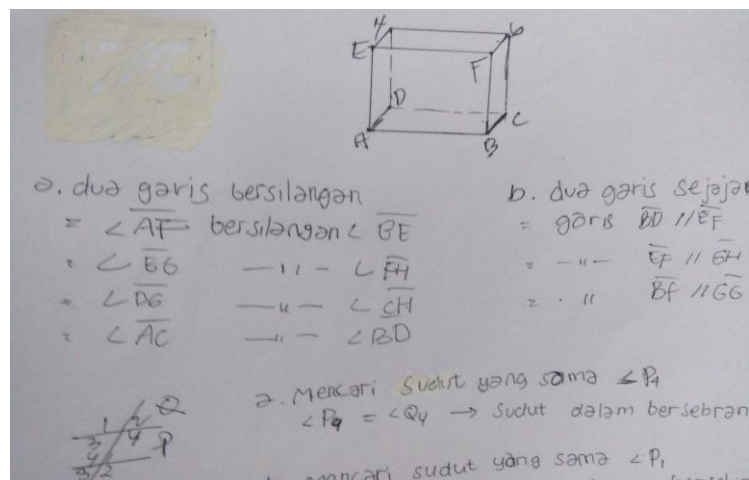 H
G
E
F
D
C
A
B
a. dua garis bersilangan
= ∠ A̅F̅ bersilangan ∠ B̅E̅
= ∠ E̅G̅ —〃— ∠ F̅H̅
= ∠ D̅G̅ —〃— ∠ C̅H̅
= ∠ A̅C̅ —〃— ∠BD
b. dua garis sejajar
= garis B̅D̅ // E̅F̅
= —〃— E̅F̅ // G̅H̅
= . 〃 B̅F̅ //
1 2 Q
3 4 P
a. Mencari sudut yang sama ∠P4
∠P4 = ∠Q4 → sudut dalam bersebran
mencari sudut yang sama ∠P1